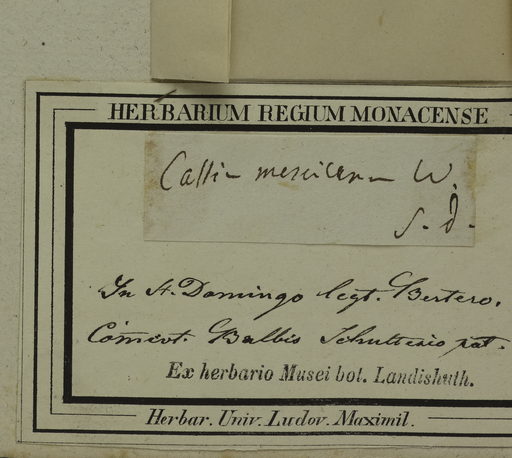 HERBARIUM REGIUM MONACENSE
W.
S. d.
In St. Domingo legt. Bertero.
Com̄ct. Balbis Schultesio pat.
Ex herbario Musei bot. Landishuth.
Herbar. Univ. Ludov. Maximil.